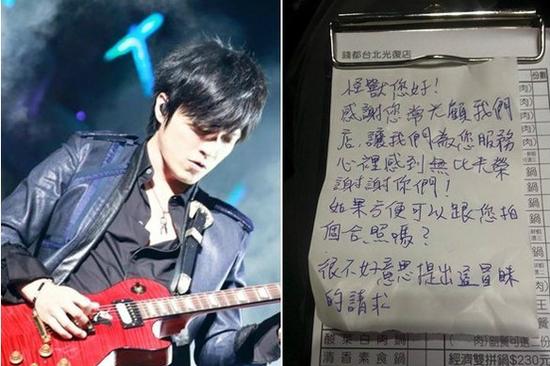 錢都台北光復店
份數
肉)
怪獸您好!
感謝您常光顧我們
店,讓我們為您服務
心裡感到無比光榮
謝謝你們!
如果方便可以跟您拍
個合照嗎?
很不好意思提出這冒昧
的請求
鍋
鍋
鍋
鍋
鍋
酸菜白肉鍋
清香素食鍋
經濟雙拼鍋$230元